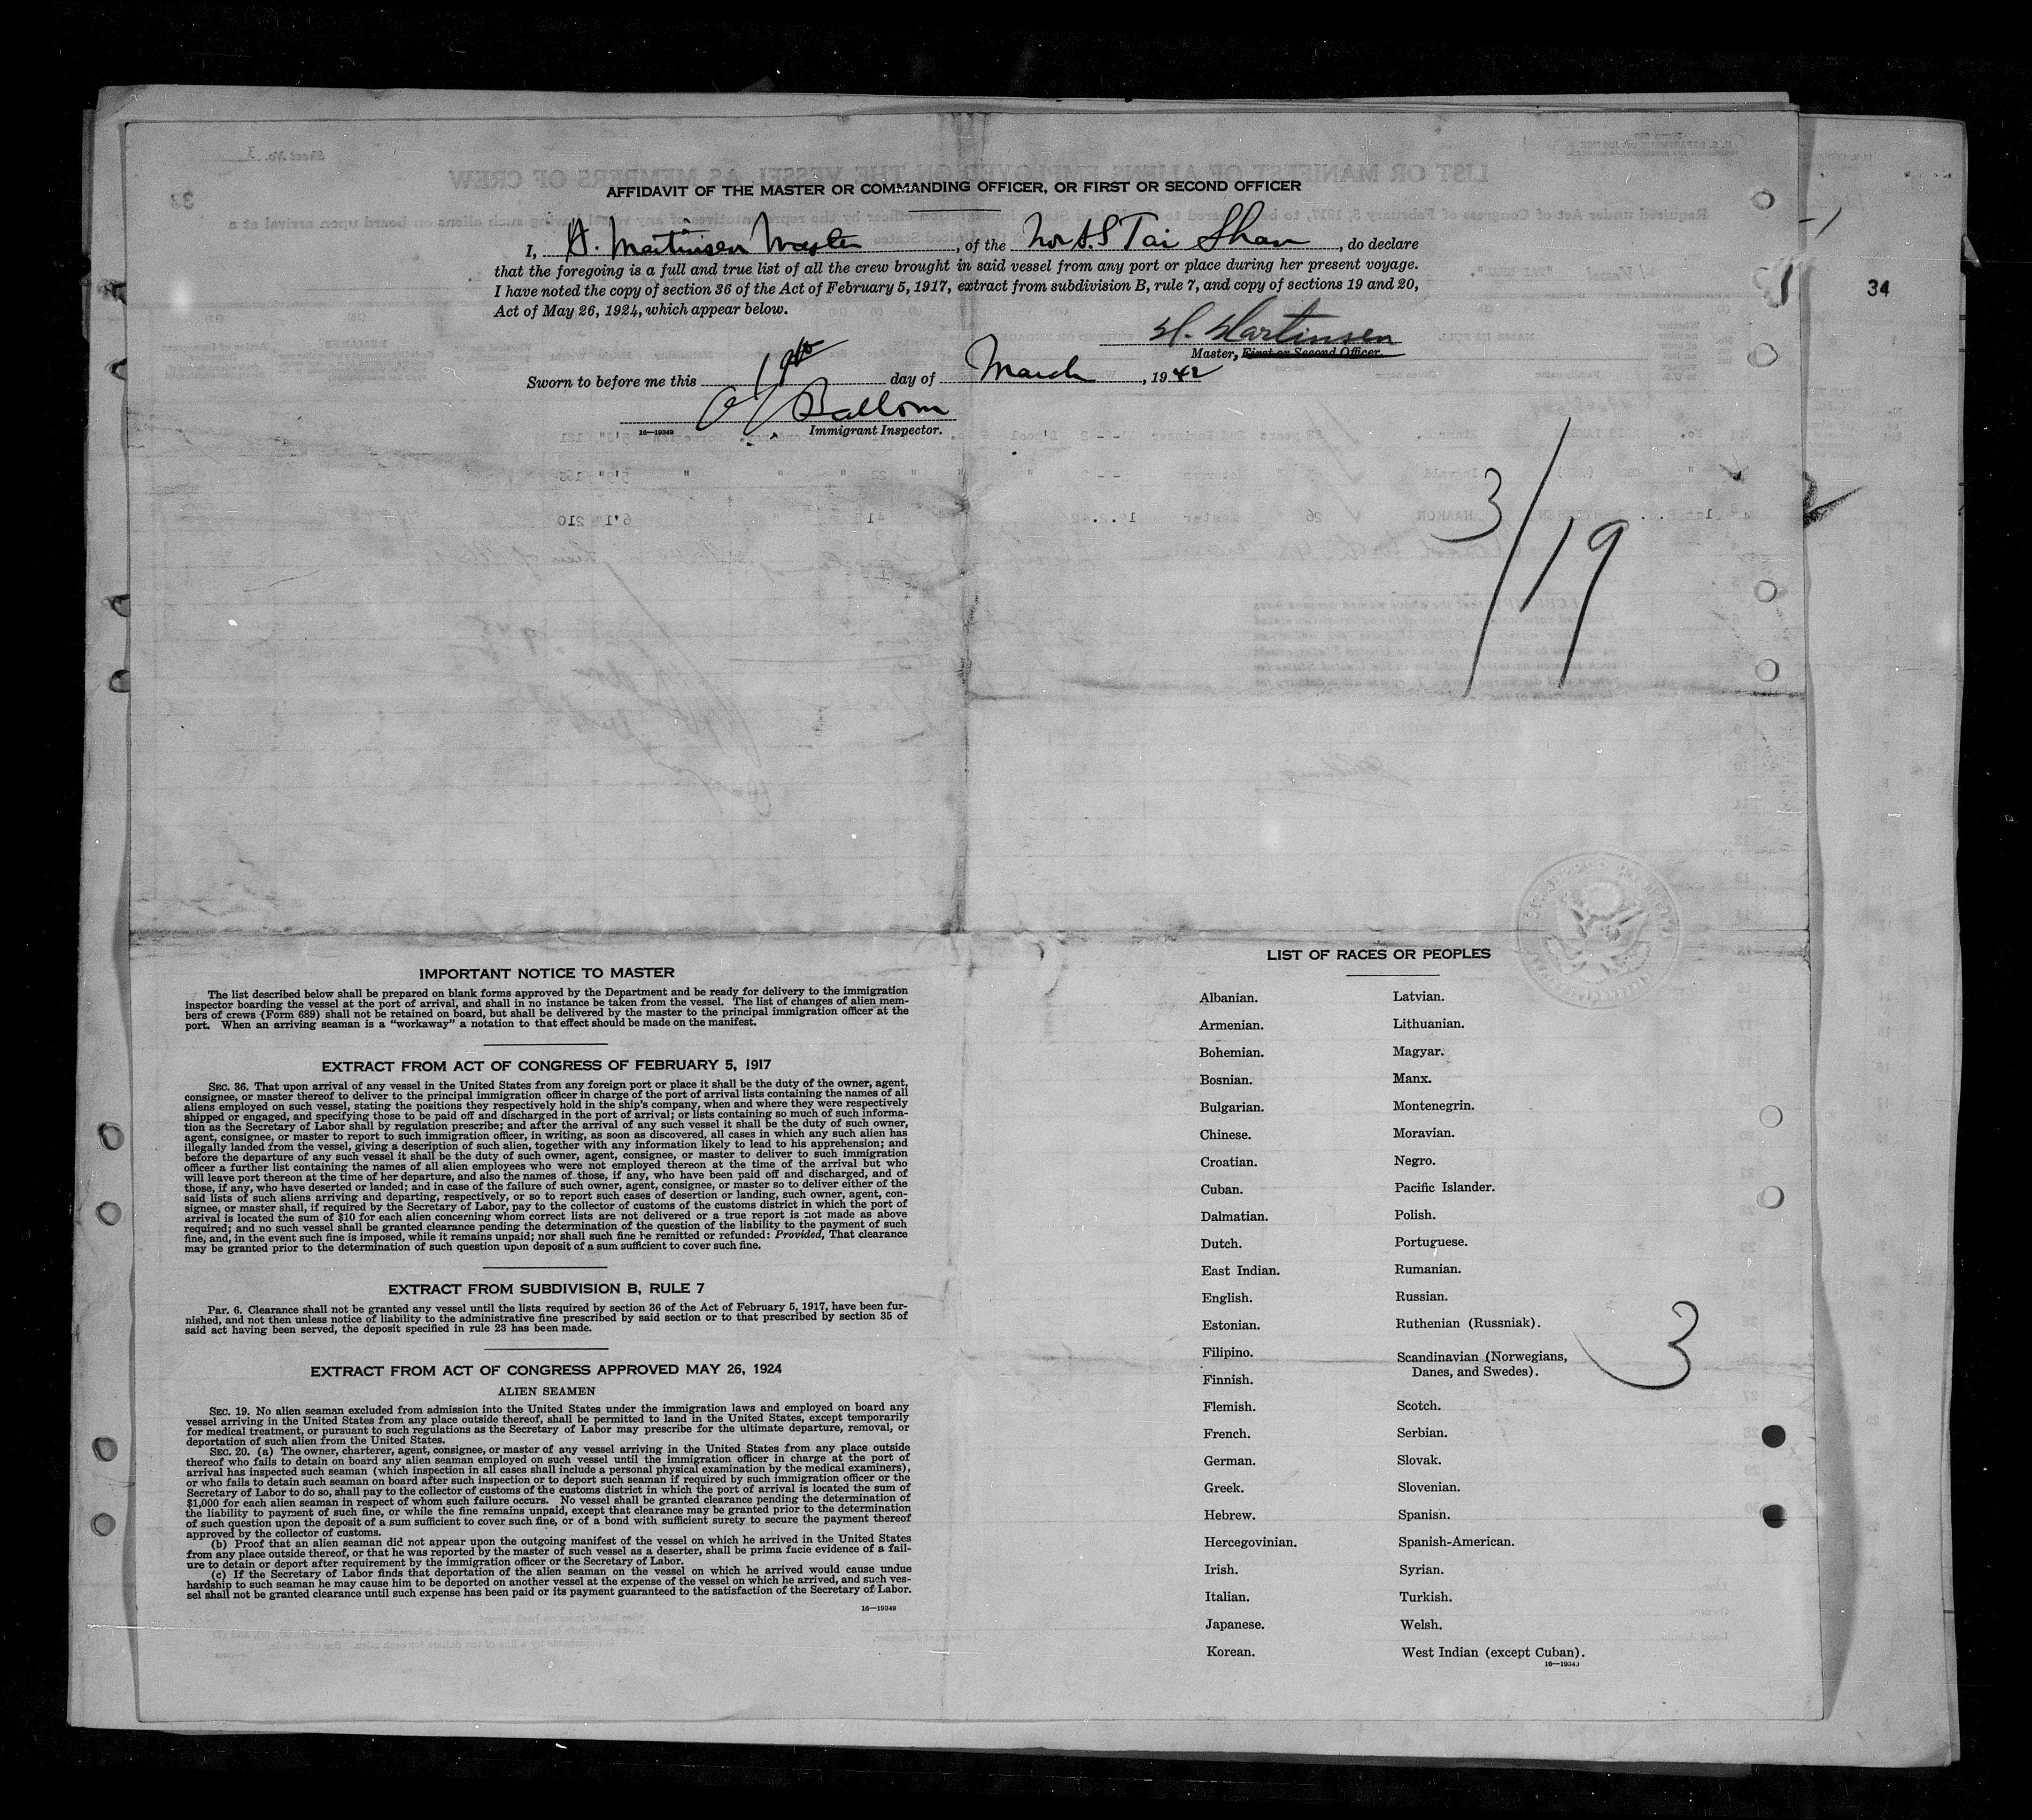 AFFIDAVIT OF THE MASTER OR COMMANDING OFFICER, OR FIRST OR SECOND OFFICER
I, H. Martinsen Master, of the Nor. S.S Tai Shan, do declare
that the foregoing is a full and true list of all the crew brought in said vessel from any port or place during her present voyage.
I have noted the copy of section 36 of the Act of February 5, 1917, extract from subdivision B, rule 7, and copy of sections 19 and 20,
Act of May 26, 1924, which appear below.
H. Martinsen
Master, First or Second Officer.
Sworn to before me this 19th day of March, 1942
Ballom
16—19349 Immigrant Inspector.
34
3/19
IMPORTANT NOTICE TO MASTER
The list described below shall be prepared on blank forms approved by the Department and be ready for delivery to the immigration
inspector boarding the vessel at the port of arrival, and shall in no instance be taken from the vessel. The list of changes of alien mem-
bers of crews (Form 689) shall not be retained on board, but shall be delivered by the master to the principal immigration officer at the
port. When an arriving seaman is a "workaway" a notation to that effect should be made on the manifest.
EXTRACT FROM ACT OF CONGRESS OF FEBRUARY 5, 1917
SEC. 36. That upon arrival of any vessel in the United States from any foreign port or place it shall be the duty of the owner, agent,
consignee, or master thereof to deliver to the principal immigration officer in charge of the port of arrival lists containing the names of all
aliens employed on such vessel, stating the positions they respectively hold in the ship's company, when and where they were respectively
shipped or engaged, and specifying those to be paid off and discharged in the port of arrival; or lists containing so much of such informa-
tion as the Secretary of Labor shall by regulation prescribe; and after the arrival of any such vessel it shall be the duty of such owner,
agent, consignee, or master to report to such immigration officer, in writing, as soon as discovered, all cases in which any such alien has
illegally landed from the vessel, giving a description of such alien, together with any information likely to lead to his apprehension; and
before the departure of any such vessel it shall be the duty of such owner, agent, consignee, or master to deliver to such immigration
officer a further list containing the names of all alien employees who were not employed thereon at the time of the arrival but who
will leave port thereon at the time of her departure, and also the names of those, if any, who have been paid off and discharged, and of
those, if any, who have deserted or landed; and in case of the failure of such owner, agent, consignee, or master so to deliver either of the
said lists of such aliens arriving and departing, respectively, or so to report such cases of desertion or landing, such owner, agent, con-
signee, or master shall, if required by the Secretary of Labor, pay to the collector of customs of the customs district in which the port of
arrival is located the sum of $10 for each alien concerning whom correct lists are not delivered or a true report is not made as above
required; and no such vessel shall be granted clearance pending the determination of the question of the liability to the payment of such
fine, and, in the event such fine is imposed, while it remains unpaid; nor shall such fine be remitted or refunded: Provided, That clearance
may be granted prior to the determination of such question upon deposit of a sum sufficient to cover such fine.
EXTRACT FROM SUBDIVISION B, RULE 7
Par. 6. Clearance shall not be granted any vessel until the lists required by section 36 of the Act of February 5, 1917, have been fur-
nished, and not then unless notice of liability to the administrative fine prescribed by said section or to that prescribed by section 35 of
said act having been served, the deposit specified in rule 23 has been made.
EXTRACT FROM ACT OF CONGRESS APPROVED MAY 26, 1924
ALIEN SEAMEN
SEC. 19. No alien seaman excluded from admission into the United States under the immigration laws and employed on board any
vessel arriving in the United States from any place outside thereof, shall be permitted to land in the United States, except temporarily
for medical treatment, or pursuant to such regulations as the Secretary of Labor may prescribe for the ultimate departure, removal, or
deportation of such alien from the United States.
SEC. 20. (a) The owner, charterer, agent, consignee, or master of any vessel arriving in the United States from any place outside
thereof who fails to detain on board any alien seaman employed on such vessel until the immigration officer in charge at the port of
arrival has inspected such seaman (which inspection in all cases shall include a personal physical examination by the medical examiners),
or who fails to detain such seaman on board after such inspection or to deport such seaman if required by such immigration officer or the
Secretary of Labor to do so, shall pay to the collector of customs of the customs district in which the port of arrival is located the sum of
$1,000 for each alien seaman in respect of whom such failure occurs. No vessel shall be granted clearance pending the determination of
the liability to payment of such fine, or while the fine remains unpaid, except that clearance may be granted prior to the determination
of such question upon the deposit of a sum sufficient to cover such fine, or of a bond with sufficient surety to secure the payment thereof
approved by the collector of customs.
(b) Proof that an alien seaman did not appear upon the outgoing manifest of the vessel on which he arrived in the United States
from any place outside thereof, or that he was reported by the master of such vessel as a deserter, shall be prima facie evidence of a fail-
ure to detain or deport after requirement by the immigration officer or the Secretary of Labor.
(c) If the Secretary of Labor finds that deportation of the alien seaman on the vessel on which he arrived would cause undue
hardship to such seaman he may cause him to be deported on another vessel at the expense of the vessel on which he arrived, and such ves-
sel shall not be granted clearance until such expense has been paid or its payment guaranteed to the satisfaction of the Secretary of Labor.
16—19349
LIST OF RACES OR PEOPLES
Albanian. Latvian.
Armenian. Lithuanian.
Bohemian. Magyar.
Bosnian. Manx.
Bulgarian. Montenegrin.
Chinese. Moravian.
Croatian. Negro.
Cuban. Pacific Islander.
Dalmatian. Polish.
Dutch. Portuguese.
East Indian. Rumanian.
English. Russian.
Estonian. Ruthenian (Russniak).
Filipino. Scandinavian (Norwegians,
Danes, and Swedes).
Finnish.
Flemish. Scotch.
French. Serbian.
German. Slovak.
Greek. Slovenian.
Hebrew. Spanish.
Hercegovinian. Spanish-American.
Irish. Syrian.
Italian. Turkish.
Japanese. Welsh.
Korean. West Indian (except Cuban).
16—19349
3